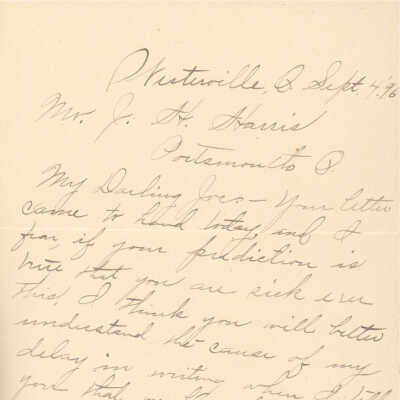 Westerville, O Sept. 4, '96
Mr. J. H. Harris
Portsmouth O.
My Darling Joco – Your letter
came to hand today, and I
fear, if your prediction is
true that you are sick ever
this, I think you will better
understand the cause of my
delay in writing when I tell
you that